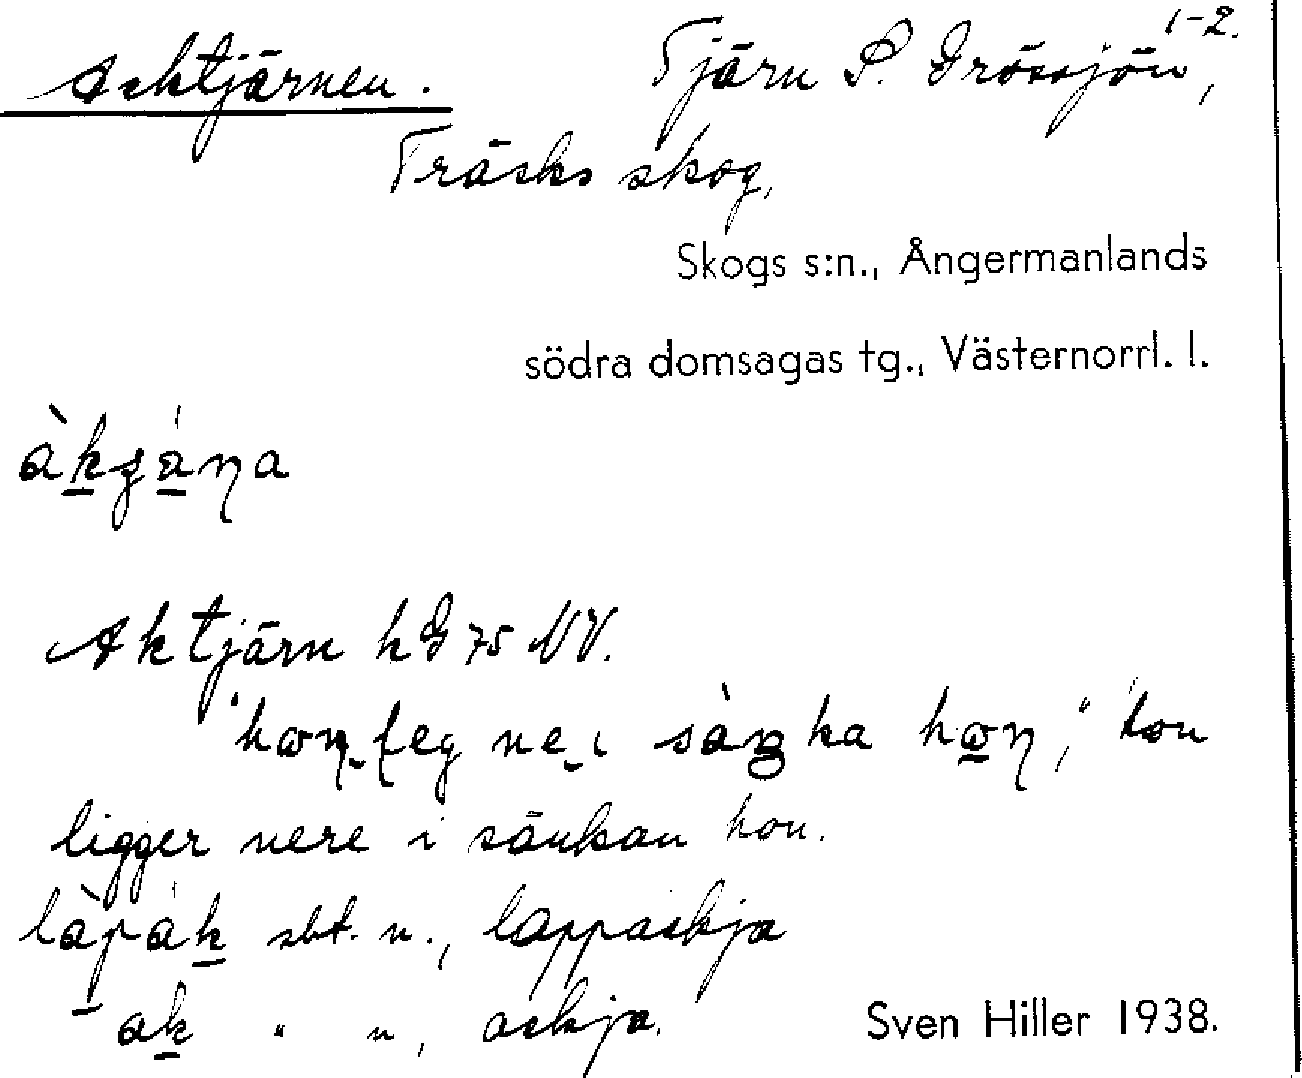 Acktjärnen. Tjärn S. Grössjön, 1-2.
Träsks skog,
Skogs s:n., Ångermanlands
södra domsagas tg., Västernorrl. l.
Aktjärn kG 75 NV.
hon
ligger nere i sänkan hon.
sbt. n., lappackja
ak " n, ackja.
Sven Hiller 1938.